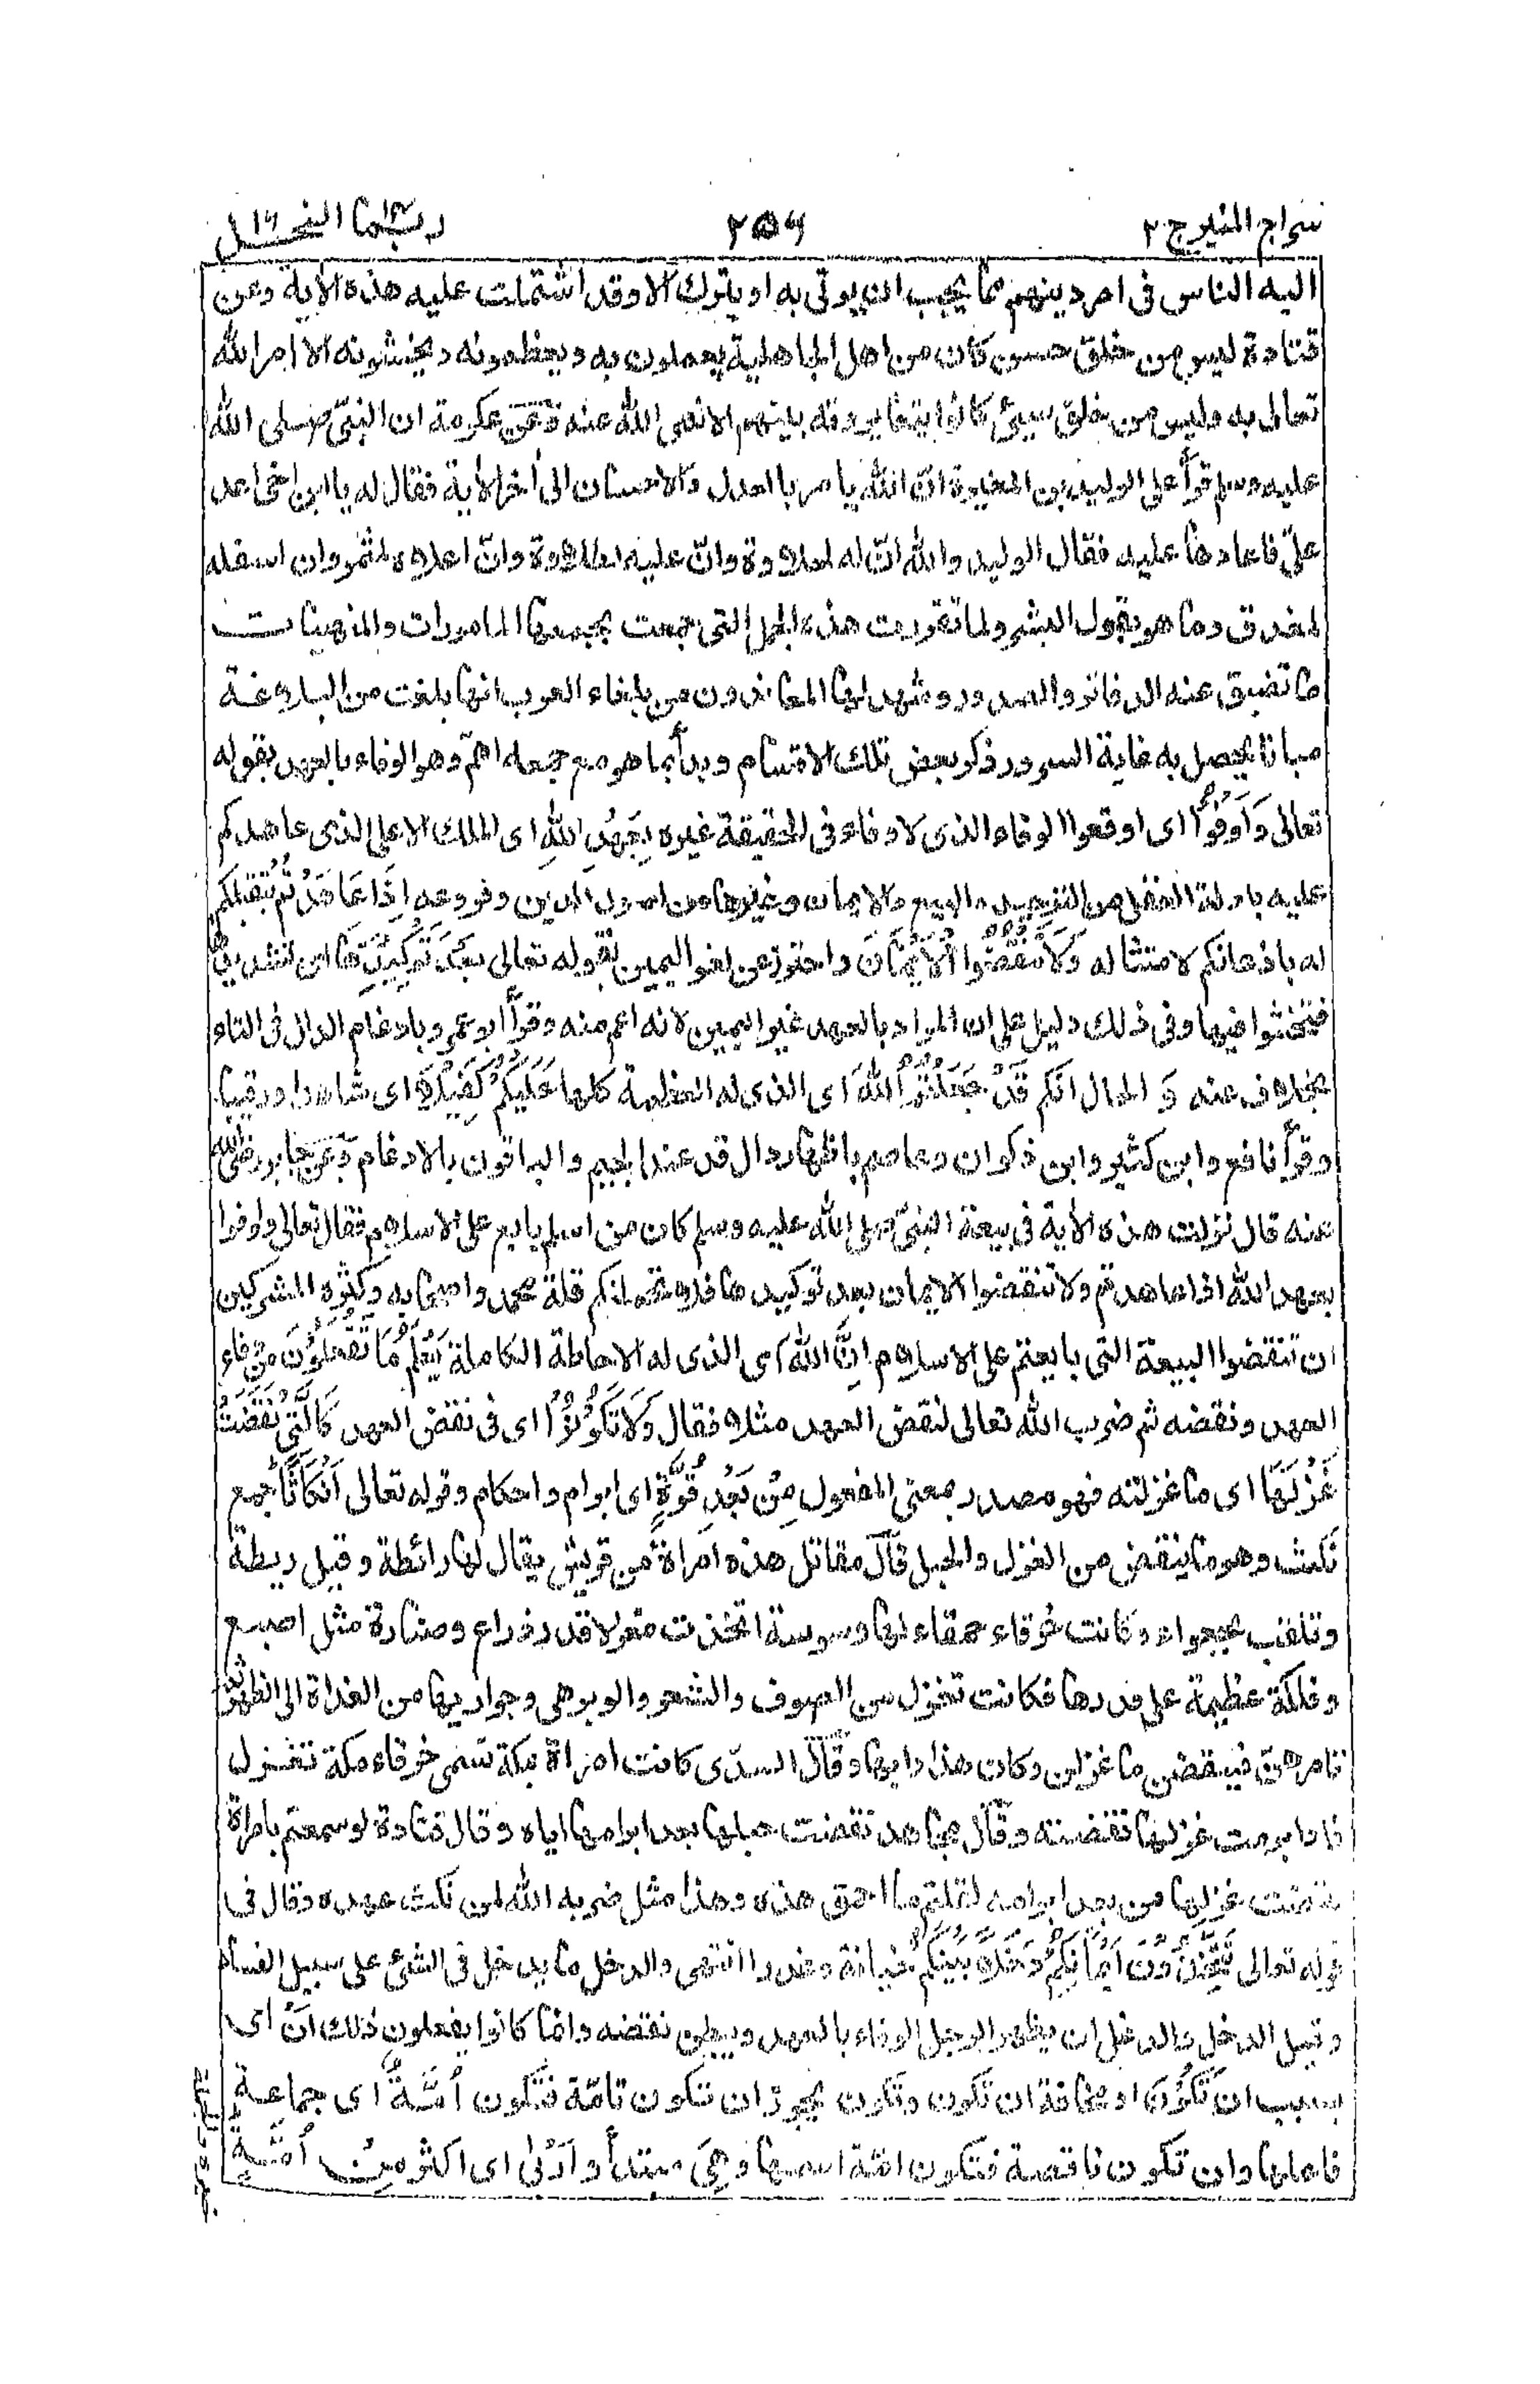 سراج المنير ج ٢ ٢٥٦ ربما ١٤ النحل ١٦
اليه الناس فى امر دينهم مما يجب ان يوتى به او يترك الا وقد اشتملت عليه هذه الاية وعن
قتادة ليس من خلق حسن كان من اهل الجاهلية يعملون به ويعظمونه ويخشونه الا امر الله
تعالى به وليس من خلق سيئ كانوا يتعايرونه بينهم الا نهى الله عنه وعن عكرمة ان النبىّ صلى الله
عليه وسلم قرأ على الوليد بن المغيرة انّ الله يامر بالعدل والاحسان الى أخر الأية فقال له يا ابن اخى اعد
علىّ فاعادها عليه فقال الوليد والله انّ له لحلاوة وانّ عليه لطلاوة وانّ اعلاه لمثمر وان اسفله
لمغدق وما هو بقول البشر ولما تقررت هذه الجمل التى جمعت بجمعها المامورات والمنهيات
ما تضيق عنه الدفاتر والصدور وشهد لها المعاندون من بلغاء العرب انها بلغت من البلاغة
مبلغا يحصل به غاية السرور ذكر بعض تلك الاقسام وبدأ بما هو مع جمعه اهمّ وهو الوفاء بالعهد بقوله
تعالى وَاَوْفُوْا اى اوقعوا الوفاء الذى لا وفاء فى الحقيقة غيره بِعَهْدِ اللهِ اى الملك الاعلى الذى عاهدكم
عليه بادلة العقل من التوحيد والبيع والايمان وغيرها من اصول الدين وفروعه اِذَا عَاهَدْتُّمْ بتقبلكم
له باذعانكم لامتثاله وَلَا تَنْقُضُوا الْاَيْمَانَ واحترز عن لغو اليمين بقوله تعالى بَعْدَ تَوْكِيْدِهَا اى تشديدها
فتحنثوا فيها وفى ذلك دليل على ان المراد بالعهد غير اليمين لانه اعم منه وقرأ ابو عمرو بادغام الدال فى التاء
بخلاف عنه وَ الحال انكم قَدْ جَعَلْتُمُ اللهَ اى الذى له العظمة كلها عَلَيْكُمْ كَفِيْلًا اى شاهدا ورقيبا
وقرأ نافع وابن كثير وابن ذكوان وعاصم باظهار دال قد عند الجيم والباقون بالادغام وعن جابر رضى الله
عنه قال نزلت هذه الأية فى بيعة النبىّ صلى الله عليه وسلم كان من اسلم يبايع على الاسلام فقال تعالى واوفوا
بعهد الله اذا عاهدتم ولا تنقضوا الايمان بعد توكيدها فلا تحملنكم قلة محمد واصحابه وكثرة المشركين
ان تنقضوا البيعة التى بايعتم على الاسلام اِنَّ اللهَ اى الذى له الاحاطة الكاملة يَعْلَمُ مَا تَفْعَلُوْنَ من وفاء
العهد ونقضه ثم ضرب الله تعالى لنقض العهد مثلا فقال وَلَا تَكُوْنُوْا اى فى نقض العهد كَالَّتِىْ نَقَضَتْ
غَزْلَهَا اى ما غزلته فهو مصدر بمعنى المفعول مِنْ بَعْدِ قُوَّةٍ اى ابرام واحكام وقوله تعالى اَنْكَاثًا جمع
نكث وهو ما ينقض من الغزل والحبل قال مقاتل هذه امراة من قريش يقال لها رائطة وقيل ريطة
وتلقب بجعراء وكانت خرقاء حمقاء لها وسوسة اتخذت مغزلا قدر ذراع وصنارة مثل اصبع
وفلكة عظيمة على قدرها فكانت تغزل من الصوف والشعر والوبر هى وجواريها من الغداة الى الظهر ثم
تامرهنّ فينقضن ما غزلن وكان هذا دابها وقال السدّى كانت امراة بمكة تسمى خرقاء مكة تغزل
فاذا ابرمت غزلها تنقضته وقال مجاهد نقضت حبلها بعد ابرامها اياه وقال قتادة لو سمعتم بامراة
نقضت غزلها من بعد ابرامه لقلتم ما احمق هذه وهذا مثل ضربه الله لمن نكث عهده وقال فى
قوله تعالى تَتَّخِذُوْنَ اَيْمَانَكُمْ دَخَلًا بَيْنَكُمْ خيانة وغدرا انتهى والدخل ما يدخل فى الشئ على سبيل الفساد
وقيل الدخل والدغل ان يظهر الرجل الوفاء بالعهد ويبطن نقضه وانما كانوا يفعلون ذلك اَنْ اى
بسبب ان تَكُوْنَ او مخافة ان تكون وتكون يجوز ان تكون تامّة فتكون اُمَّةٌ اى جماعة
فاعلها وان تكون ناقصة فتكون امّة اسمها وهِىَ مبتدأ واَرْبٰى اى اكثر مِنْ اُمَّةٍ